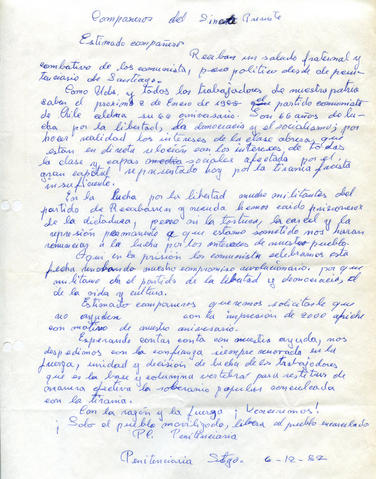 Compañeros del Presente
Estimado compañero
Reciban un saludo fraternal y
combativo de los comunista, preso politico desde de peni-
tenciaria de Santiago.
Como Uds. y todos los trabajadores de nuestra patria
saben el proximo 2 de Enero de 1988 el partido comunista
de Chile celebra su 66 aniversario. Son 66 años de lu-
cha por la libertad, la democracia y el socialismo; por
hacer realidad los intereses de la clase obrera, que
estan en directa relacion con los intereses de todas
la clase y capas sociales afectada por el
gran capital representado hoy por la tirania facista
insuficiente.
En la lucha por la libertad mucho militantes del
partido de Recabarren y Neruda hemos caido prisioneros
de la dictadura, pero ni la tortura, la carcel y la
represión permanente a que estamo sometido nos haran
renunciar a la lucha por los intereses de nuestro pueblo.
Aqui en la prisión los comunista celebramos esta
fecha renobando nuestro compromiso revolucionario, por que
militamo en el partido de la libertad y democracia, el
de la vida y cultura.
Estimado compañeros queremos solicitarle que
no ayuden con la impresión de 2000 afiche
con motivo de nuestro aniversario.
Esperando contar con vuestra ayuda, nos
despedimos con la confianza siempre renovada en la
fuerza, unidad y decisión de lucha de los trabajadores
que es la base y columna vertebral para restituir de
manera efectiva la soberania popular conculcada
con la tirania.
Con la razón y la fuerza ¡Venceremos!
¡Solo el pueblo movilizado, libera al pueblo encarcelado
P.C. Penitenciaria
Penitenciaria Stgo. 6-12-87